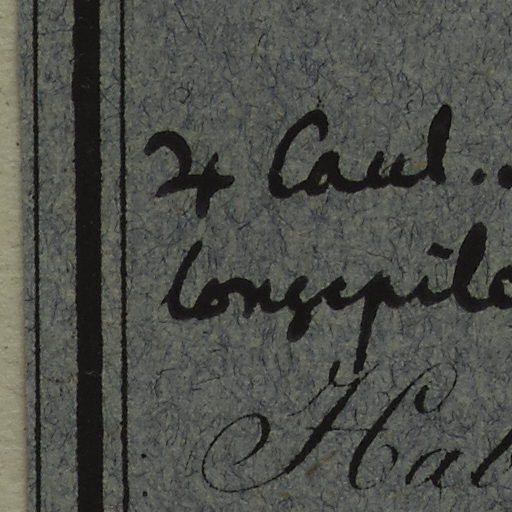 ♃ Caul..
longepilo
Hab